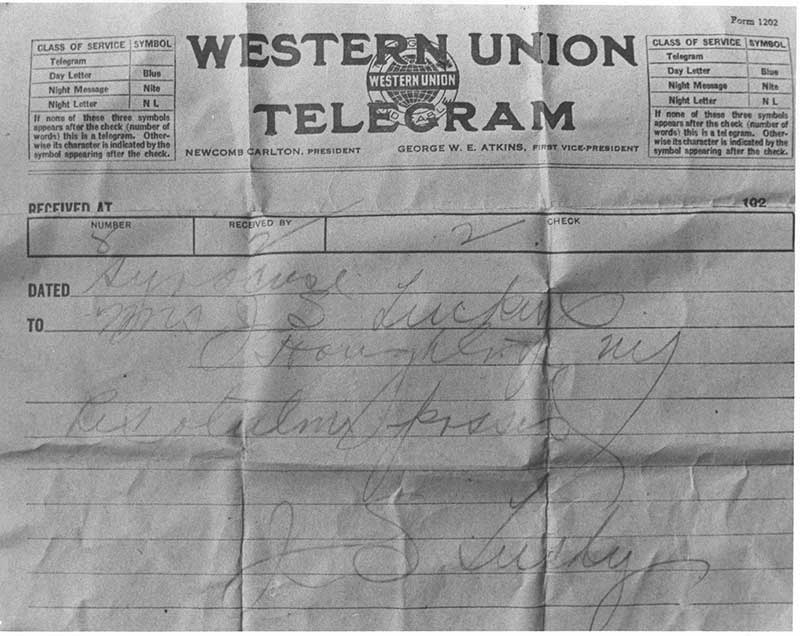 Form 1202
CLASS OF SERVICE SYMBOL
Telegram
Day Letter Blue
Night Message Nite
Night Letter N L
If none of these three symbols
appears after the check (number of
words) this is a telegram. Other-
wise its character is indicated by the
symbol appearing after the check.
WESTERN UNION
WESTERN UNION
TELEGRAM
NEWCOMB CARLTON, PRESIDENT GEORGE W. E. ATKINS, FIRST VICE-PRESIDENT
CLASS OF SERVICE SYMBOL
Telegram
Day Letter Blue
Night Message Nite
Night Letter N L
If none of these three symbols
appears after the check (number of
words) this is a telegram. Other-
wise its character is indicated by the
symbol appearing after the check.
RECEIVED AT 192
NUMBER RECEIVED BY CHECK
8 2
DATED Syracuse
TO Mrs J S Luckey
Houghton NY
Resolution passed
J S Luckey